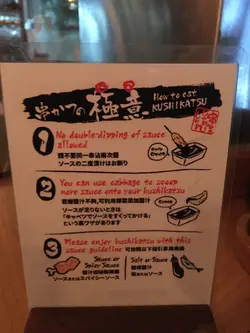 串かつの極意
How to eat
KUSHIKATSU
1
No double-dipping of sauce
allowed
請不要同一串沾兩次醬
ソースの二度漬けはお断り
Only
Once
2
You can use cabbage to scoop
more sauce onto your kushikatsu
若嫌醬汁不夠,可利用高麗菜加醬汁
ソースが足りないときは
「キャベツでソースをすくってかける」
という裏ワザがあります
3
Please enjoy kushikatsu with this
sauce guideline
Sauce or
Spicy Sauce
ソースまたはスパイシーソース
Salt or Sauce